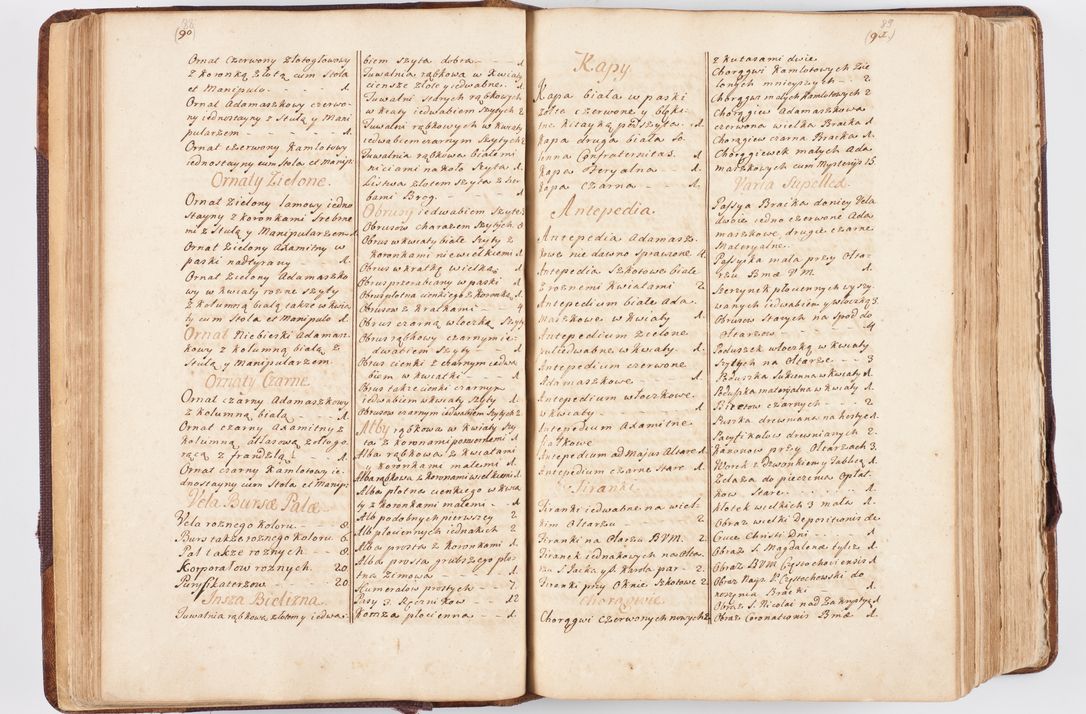 (90)
Ornat Czerwony złotogłowowy
z koronką złotą cum Stola
et Manipulo. 1.
Ornat Adamaszkowy czerwo-
ny iednostayny z Stułą y Mani
pularzem 1.
Ornat czerwony Kamlotowy
iednostayny cum Stola et Manip:
Ornaty Zielone.
Ornat Zielony lamowy iedno
stayny z koronkami Srebrne
mi z Stułą y Manipularzem 1.
Ornat Zielony Axamitny w
paski nadtyrany 1.
Ornat Zielony Adamaszko
wy w kwiaty rozne szyty
z kolumną białą także w kwia
ty cum Stola et Manipulo 1.
Ornat Niebieski Adamasz
kowy z kolumną białą z
Stułą y Manipularzem
Ornaty Czarne
Ornat czarny Adamaszkowy
z kolumną białą 1.
Ornat czarny Axamitny z
kolumną atłasową złotogo
rącą z frandzlą 1.
Ornat czarny Kamlotowy ie-
dnostayny cum Stola et Manip:
Vela Bursæ Palæ
Vela roznego koloru 8
Burs także roznego koloru 6
Pal także roznych 8
Korporałow roznych 20
Puryfikaterzow 20
Insza Bielizna
Tuwalnia rąbkowa złotem y iedwa-
biem szyta dobra 1
Tuwalnia rąbkowa w kwiaty
cieńsze złote y iedwabne 1
Tuwalni Starych rąbkowych
w kraty iedwabiem szytych 2
Tuwalni rąbkowych w kwiaty
iedwabiem czarnym Szytych 2
Tuwalnia rąbkowa białemi
niciami nakoło Szyta 1.
Listwa złotem szyta z her-
bami Brog. 1
Obrusy iedwabiem szyte
Obrusow charazem szytych
Obrus w kwiaty białe Szyty z
koronkami niewielkiemi 1
Obrus w kratkę wielką 1
Obrus przerabcany w paski 1
Obrus płotna cienkiego z koronką 1.
Obrusow z kratkami 4
Obrus czarną włoczką Szyty
Obrus rąbkowy czarnym ie-
dwabiem Szyty 1
Obrus cienki z czarnym iedwa
biem w kwiatki 1
Obrus także cienki czarnym
iedwabiem w kwiaty szyty 1
Obrusow czarnym iedwabiem Szytych 2
Alby rąbkowa w kwiaty Szy
ta z koronami pozwornemi 1
Alba rąbkowa z kwiatami
y koronkami małemi 1.
Alba rąbkowa z koronami wielkiemi 1
Alba płotna cienkiego w kwia
ty z koronkami małemi 1
Alb podobnych pierwszey 2
Alb płociennych iednakich 2
Alba prosta z koronkami 1
Alba prosta grubszego płot
tna zimowa 1
Humerałow prostych 7
Pasy z Ręcznikow 12
Komza płocienna 1
89
(91.)
Kapy.
Kapa biała w paski
złote czerwone, y błęki
tne kitayką podszyta 1.
Kapa druga biała So-
lenna Confraternitas. 1.
Kapa Feryalna 1.
Kapa Czarna 1.
Antepedia.
Antepedia Adamasz-
kowe nie dawno sprawione 1.
Antepedia Szkotowe białe
z roznemi kwiatami 2
Antepedium białe Ada-
maszkowe w kwiaty 1.
Antepedium Zielone
pułiedwabne w kwiaty 1.
Antepedium czerwone
Adamaszkowe 1.
Antepedium włoczkowe
w kwiaty 1
Antepedium Adamitne
białkowe
Antepedium ad Majus Altare 1.
Antepedium czarne Stare 1.
Firanki.
Firanki iedwabne na wiel-
kim Ołtarzu 2.
Firanki na Ołarzu BVM. 2.
Firanek iednakowych na Ołta-
rzu S Jacka y S. Karola par 2.
Firanki przy Oknie Szkotowe 2.
Chorągwie
Chorągwi Czerwonych nowych 2
z kutasami dwie
Chorągwi Kamlotowych Zie
lonych mnieyszych 2
Chorągwi małych Kamlotowych 2
Chorągiew Adamaszkowa
czerwona wielka Bracka 1.
Chorągiew czarna Bracka 1.
Chorągiewek małych Ada
maszkowych cum Mysterijs 15.
Varia Supellex.
Passya Bracka do niey Vela
dwoie iedno czerwone Ada
maszkowe, drugie czarne
Materyalne.
Passyika mała przy Ołtar-
rzu Bmæ V.M. 1.
Pierzynek płociennych wyszy-
wanych iedwabiem y włoczką 3.
Obrusow Starych na Spod do
Ołtarzow 4
Poduszek włoczką w kwiaty
Szytych na Ołtarze 3
Poduszka Sukienna w kwiaty 1.
Poduszka materyalna w kwiaty 1.
Biretow czarnych 2
Puszka drewniana na hostye 1.
Pacyfikałow drewnianych 2.
Dzwonow przy Ołtarzach 3.
Worek z dzwonkiem y tablicą 1.
Żelaza do pieczenia Opłat-
kow Stare. 1.
Kłotek wielkich 3 mała 1.
Obraz wielki Depositionis de
Cruce Christi Dni 1.
Obraz S. Magdalena tyliż 1.
Obraz BVM Częstochoviensis 1
Obraz Nays. P. Częstochowski do
noszenia Bracki 1
Obraz S. Nicolai nad Zakrystyą 1
Obraz Coronationis Bmæ 1